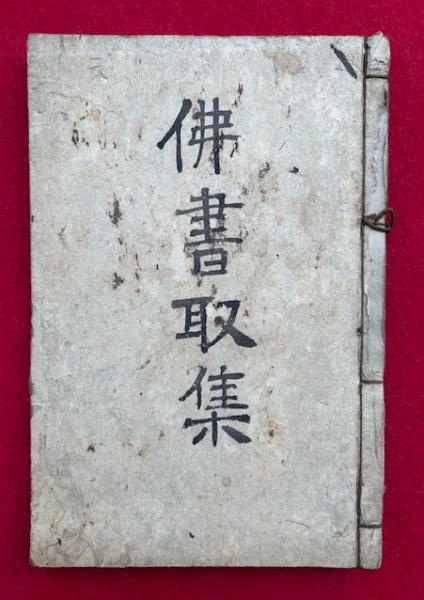 佛書取集